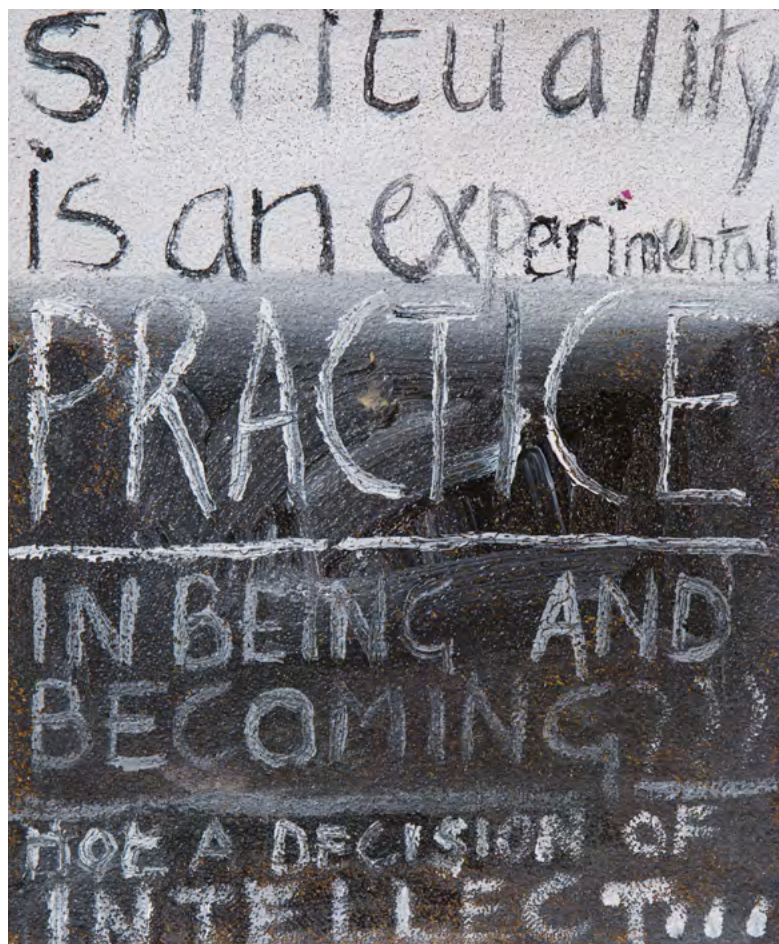 spirituality
is an experimental
PRACTICE
IN BEING AND
BECOMING???
NOt A DECISION OF
INTELLECT...